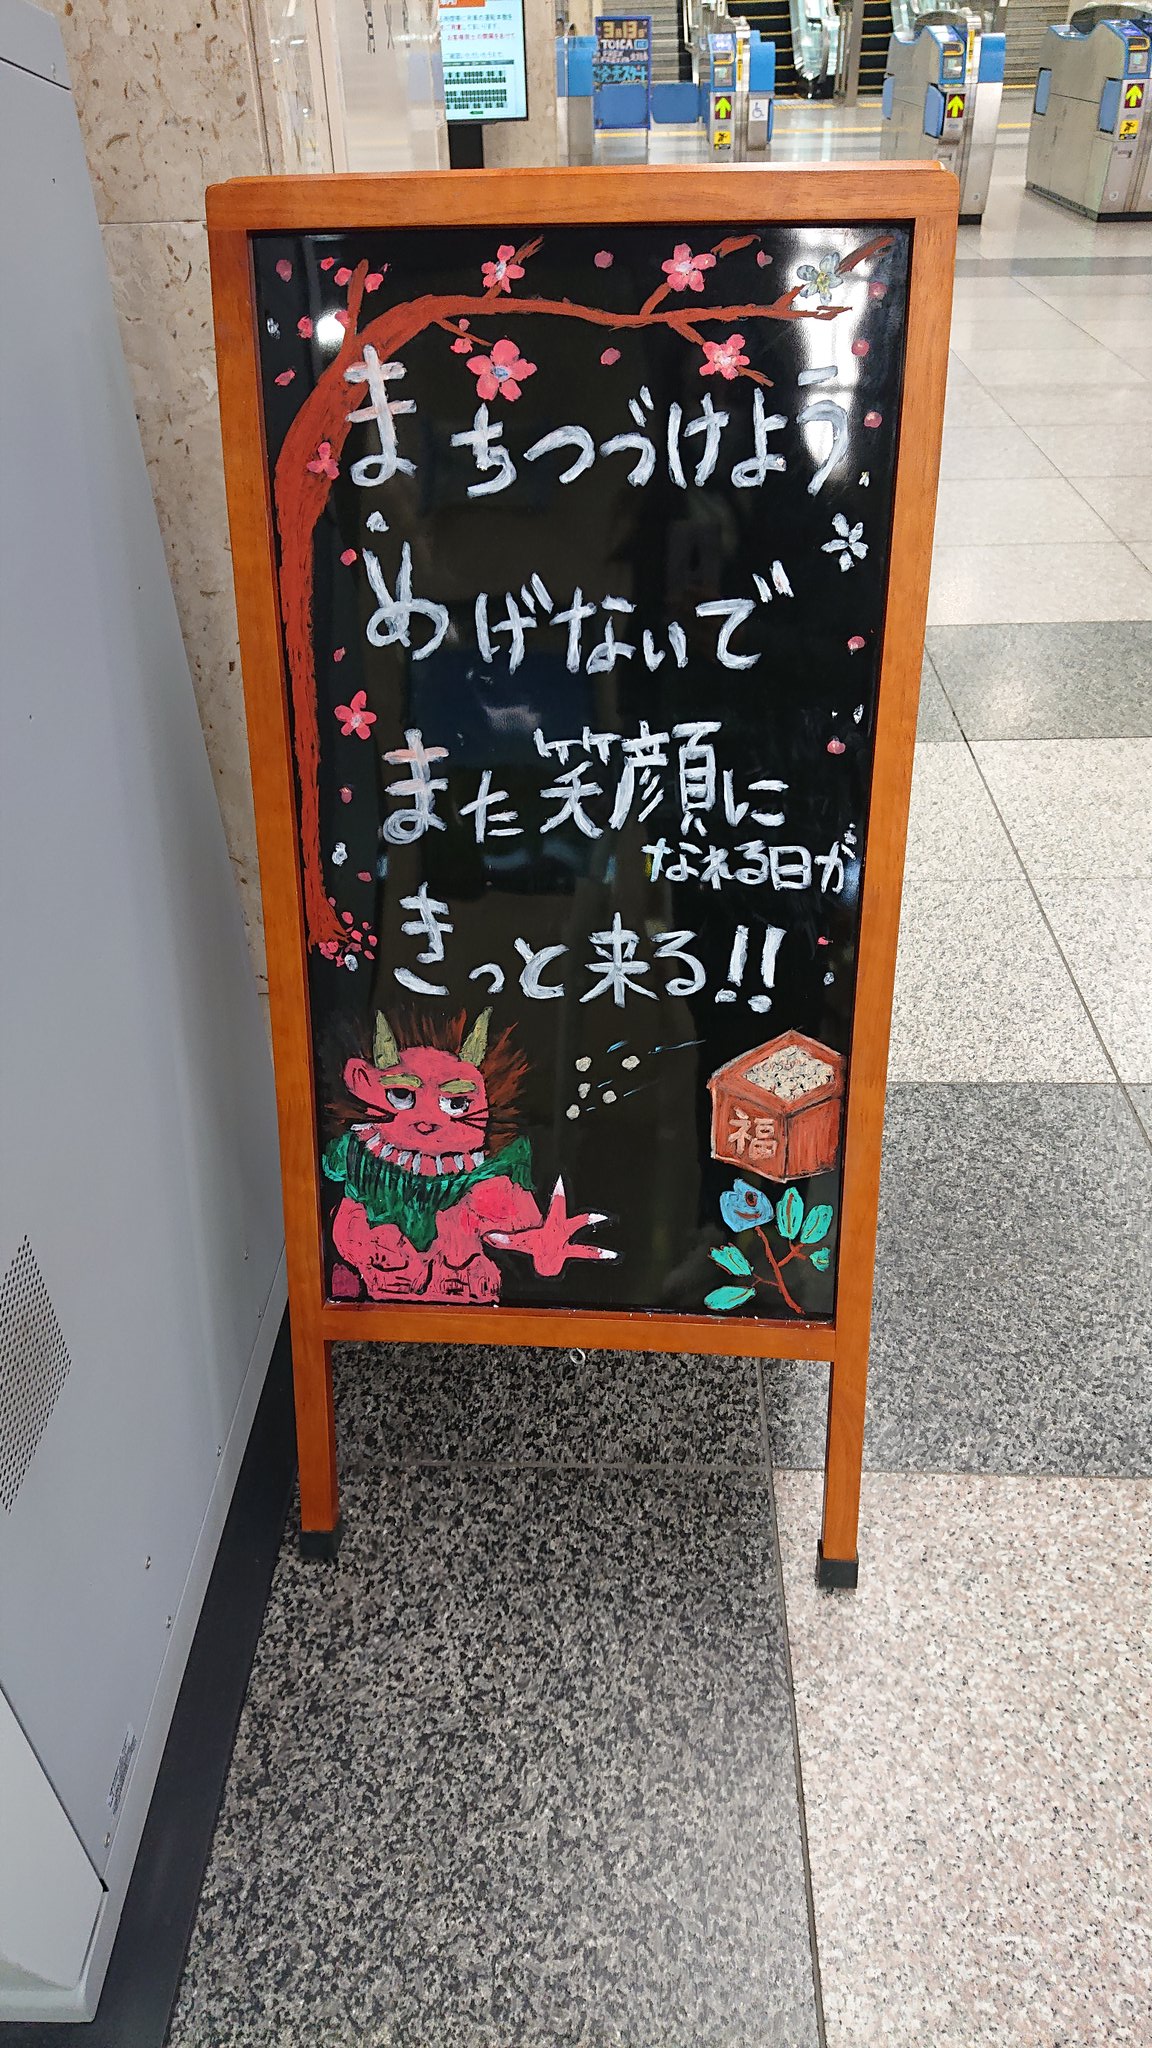 3月13日
TOICA
まちつづけよう
めげないで
また笑顔に
なれる日が
きっと来る!!
福